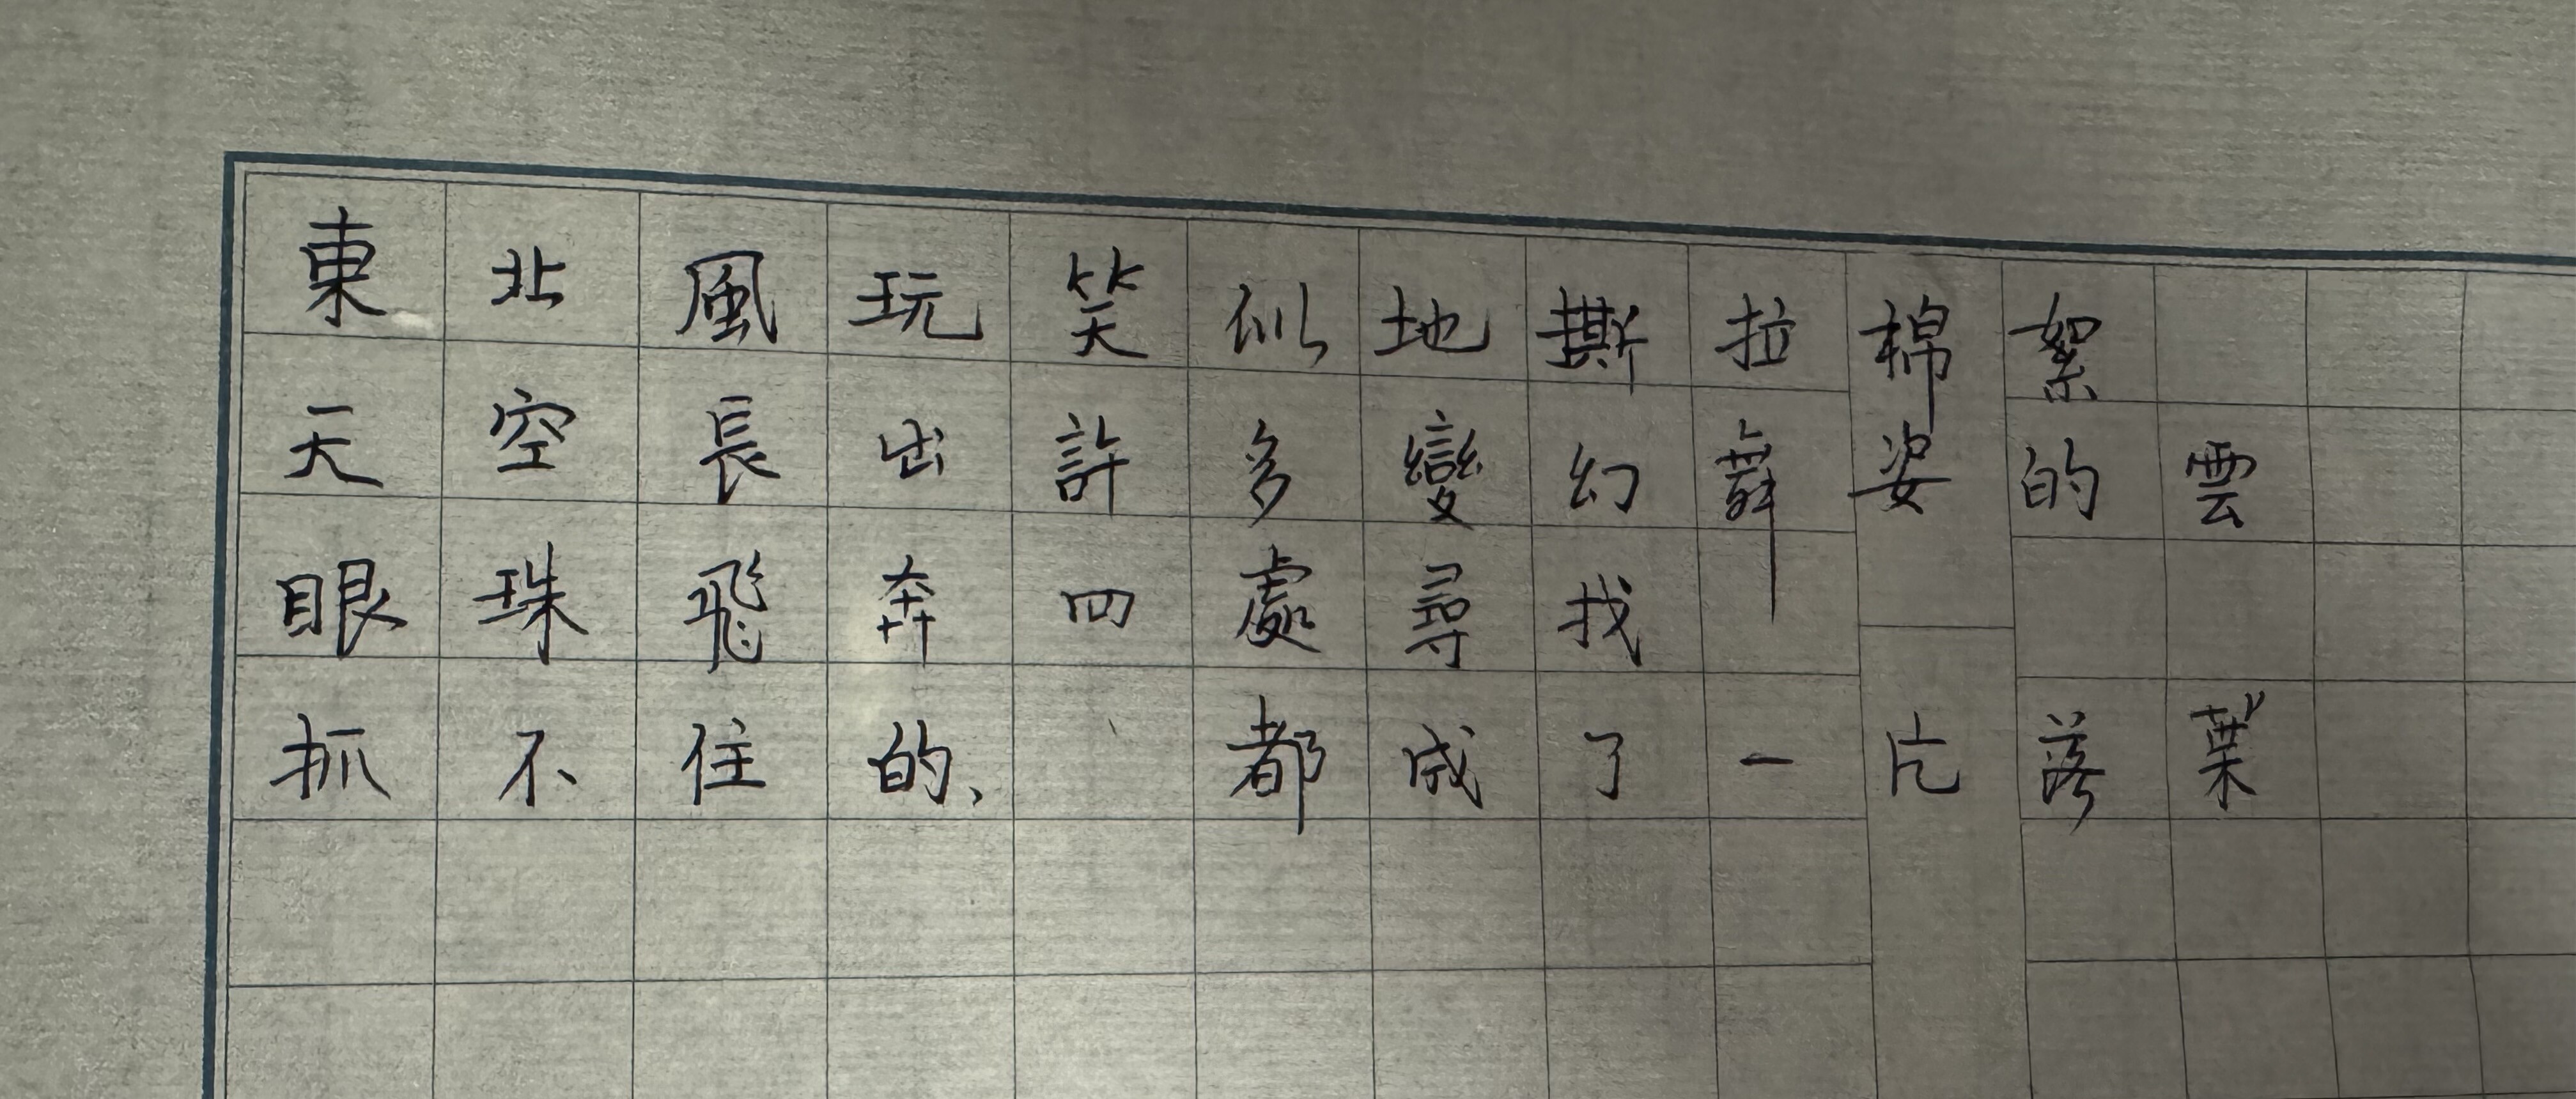 東北風玩笑似地撕拉棉絮
天空長出許多變幻舞姿的雲
眼珠飛奔四處尋找
抓不住的、都成了一片落葉